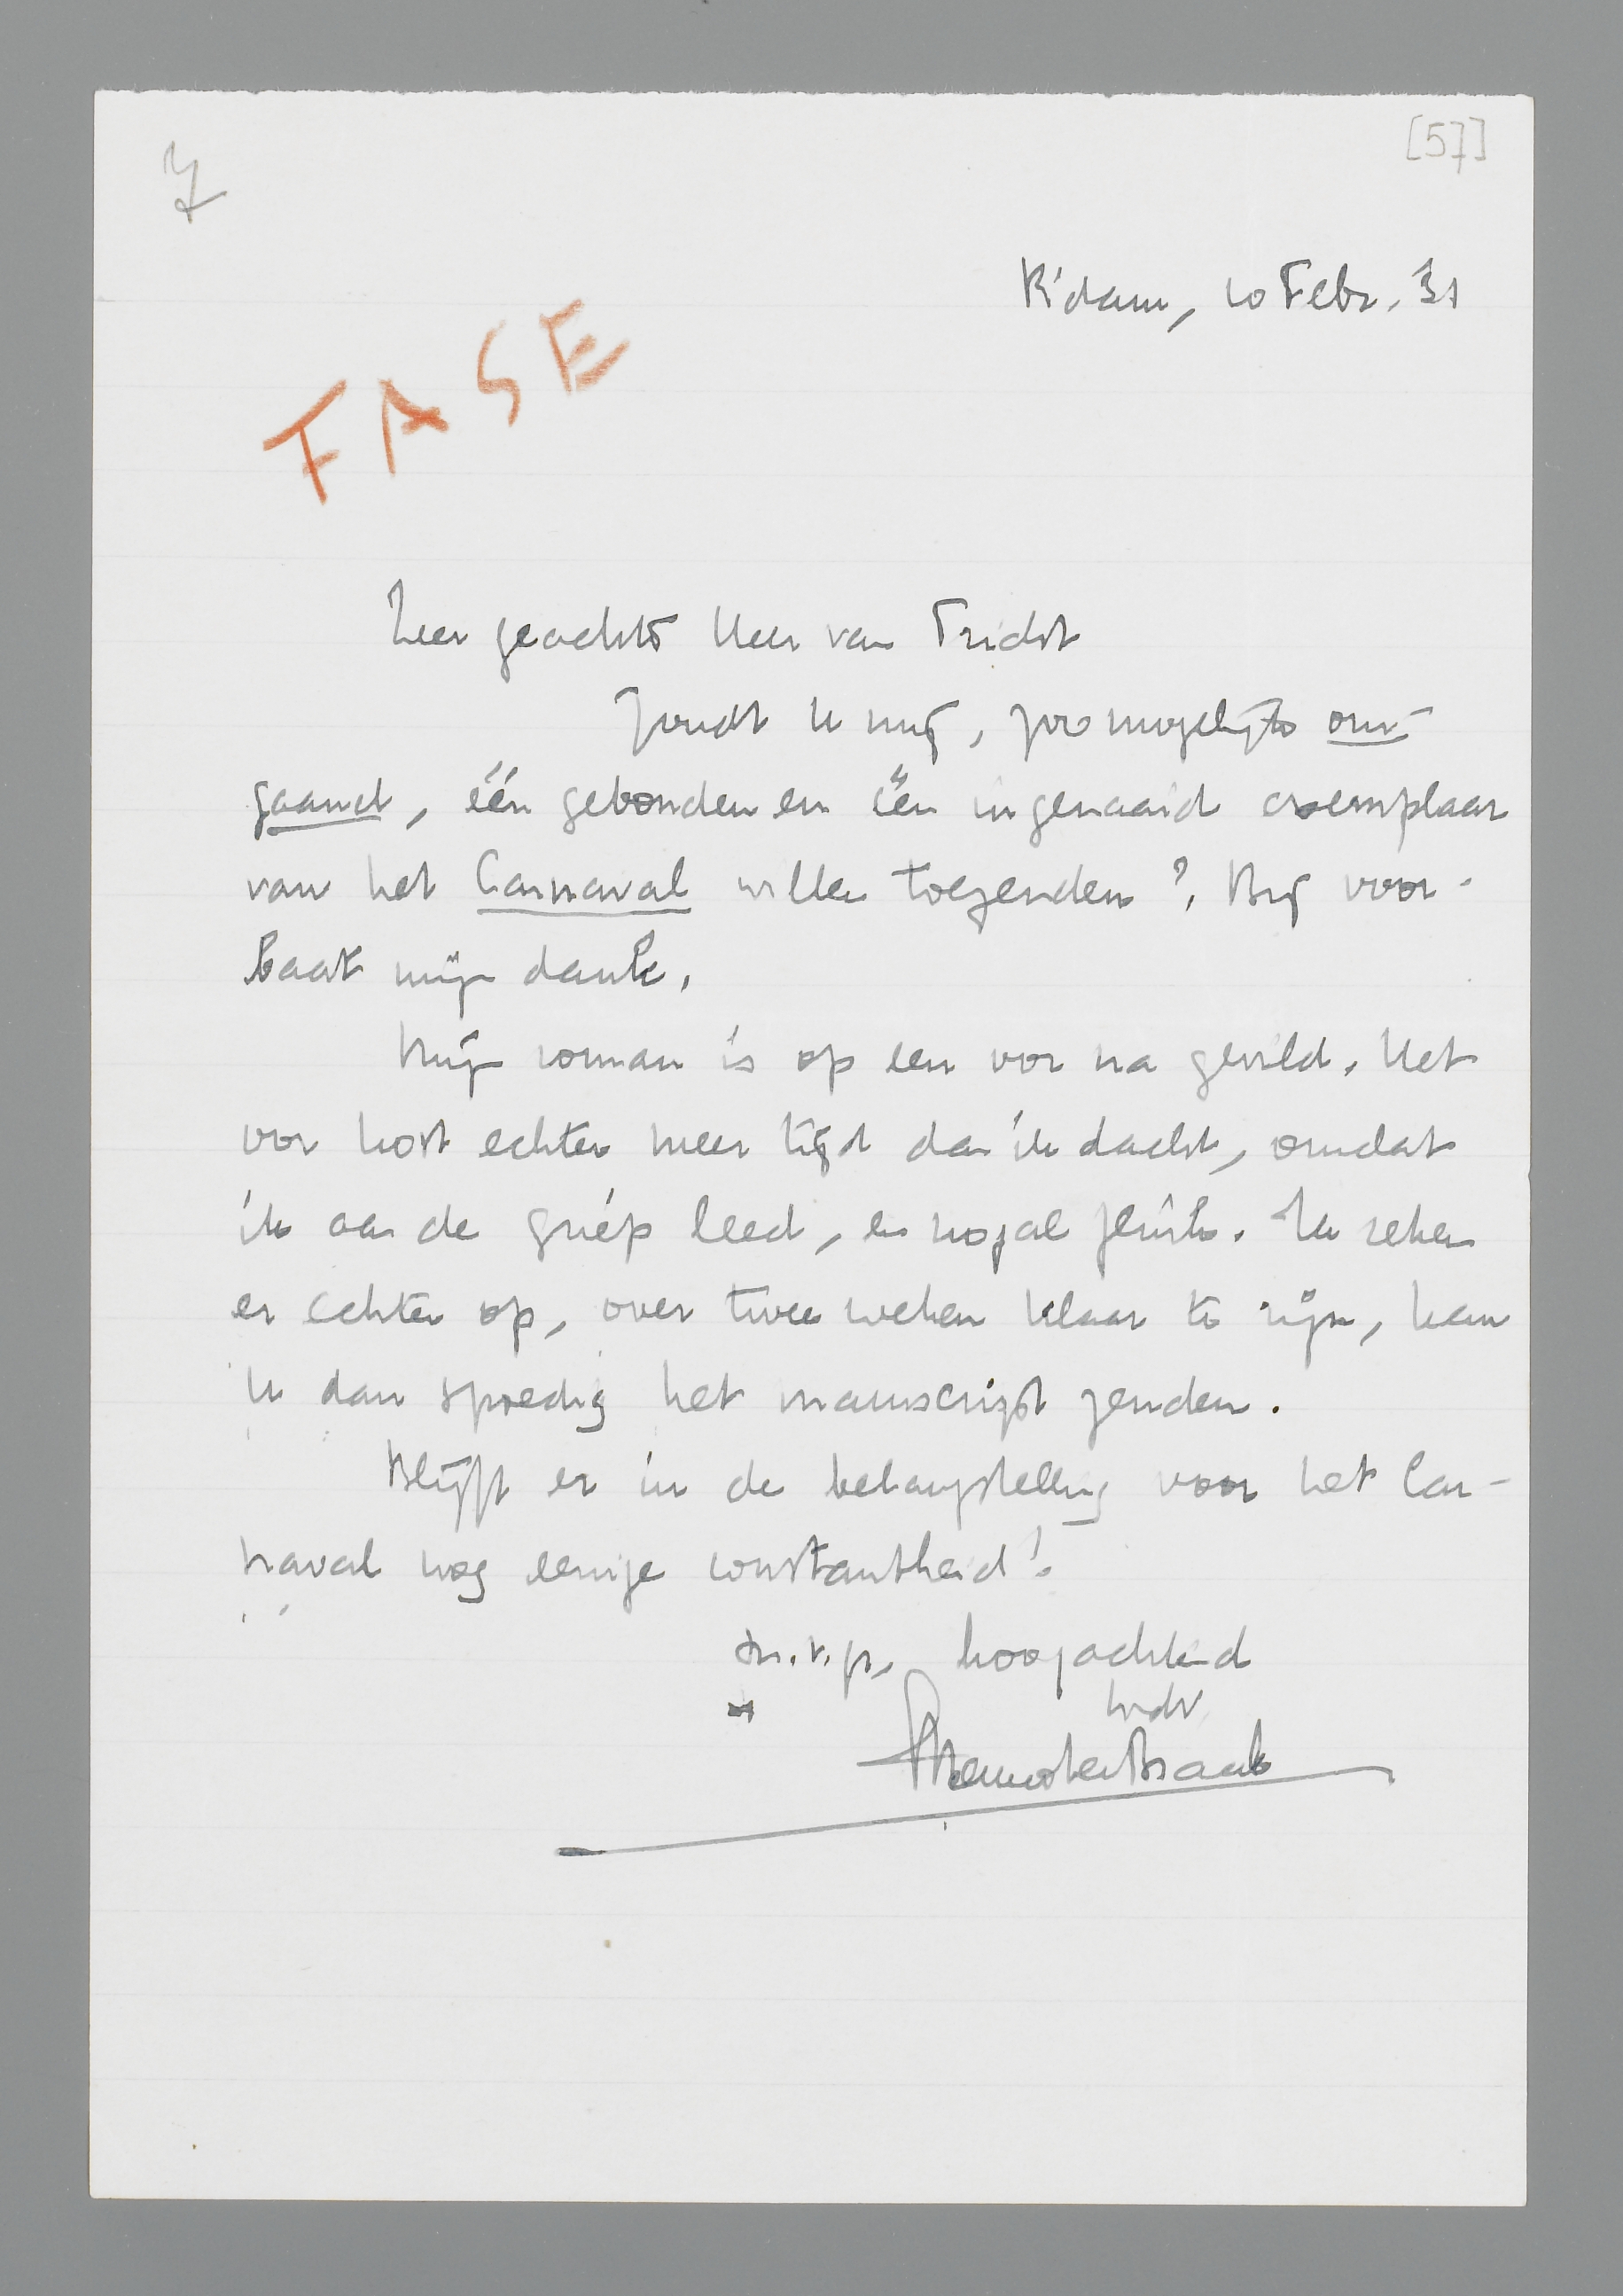 [57]
R'dam, 10 Febr. 31
FASE
Zeer geachte Heer van Tricht
Zoudt U mij, zoo mogelijk om-
gaand, één gebonden en één ingenaaid exemplaar
van het Carnaval willen toezenden? Bij voor-
baat mijn dank.
Mijn roman is op een vor na gevild. Het
vor kost echter meer tijd dan ik dacht, omdat
ik aan de griep leed, en nogal flink. Ik reken
er echter op, over twee weken klaar te zijn, kan
U dan spoedig het manuscript zenden.
Blijft er in de belangstelling voor het Car-
naval nog eenige constantheid?
m.v.gr. hoogachtend
MennoterBraak